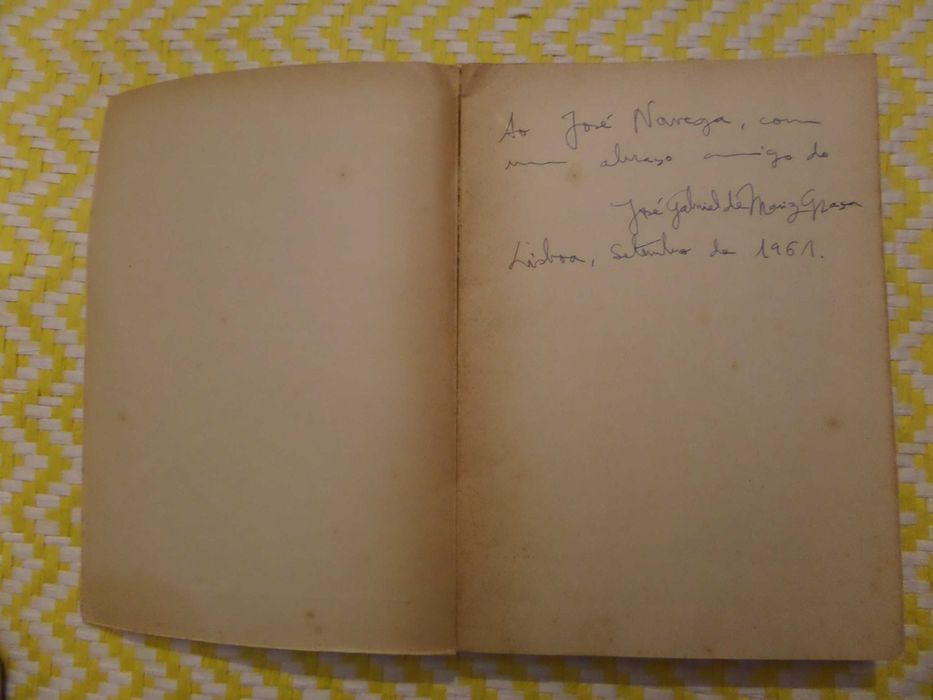 Ao José Navega, com
um abraço amigo do
José Gabriel de Mariz Graça
Lisboa, Setembro de 1961.